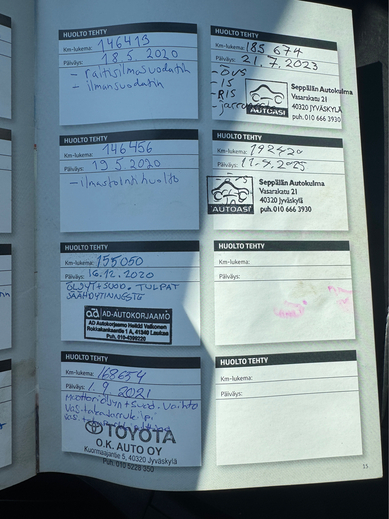 HUOLTO TEHTY
Km-lukema: 146413
Päiväys: 18.5.2020
- raitisilmasuodatin
- ilmansuodatin
HUOLTO TEHTY
Km-lukema: 146456
Päiväys: 19.5.2020
- ilmastointihuolto
HUOLTO TEHTY
Km-lukema: 155050
Päiväys: 16.12.2020
ÖLJYT+SUOD. TULPAT
JÄÄHDYTINNESTE
ad AD-AUTOKORJAAMO
AD Autokorjaamo Heikki Valkonen
Rokkakankaantie 1 A, 41340 Laukaa
HUOLTO TEHTY
Km-lukema: 168654
Päiväys: 1.9.2021
Moottoriöljyn+suod. vaihto
TOYOTA
O.K. AUTO OY
Kuormaajantie 5, 40320 Jyväskylä
Puh. 010 5228 350
HUOLTO TEHTY
Km-lukema: 185 674
Päiväys: 21.7.2023
- ÖVS
- IS
- RIS
AUTOASI
Seppälän Autokulma
Vasarakatu 21
40320 JYVÄSKYLÄ
puh. 010 666 3930
HUOLTO TEHTY
Km-lukema:
Päiväys:
AUTOASI
Seppälän Autokulma
Vasarakatu 21
40320 Jyväskylä
puh. 010 666 3930
HUOLTO TEHTY
Km-lukema:
Päiväys:
HUOLTO TEHTY
Km-lukema:
Päiväys: